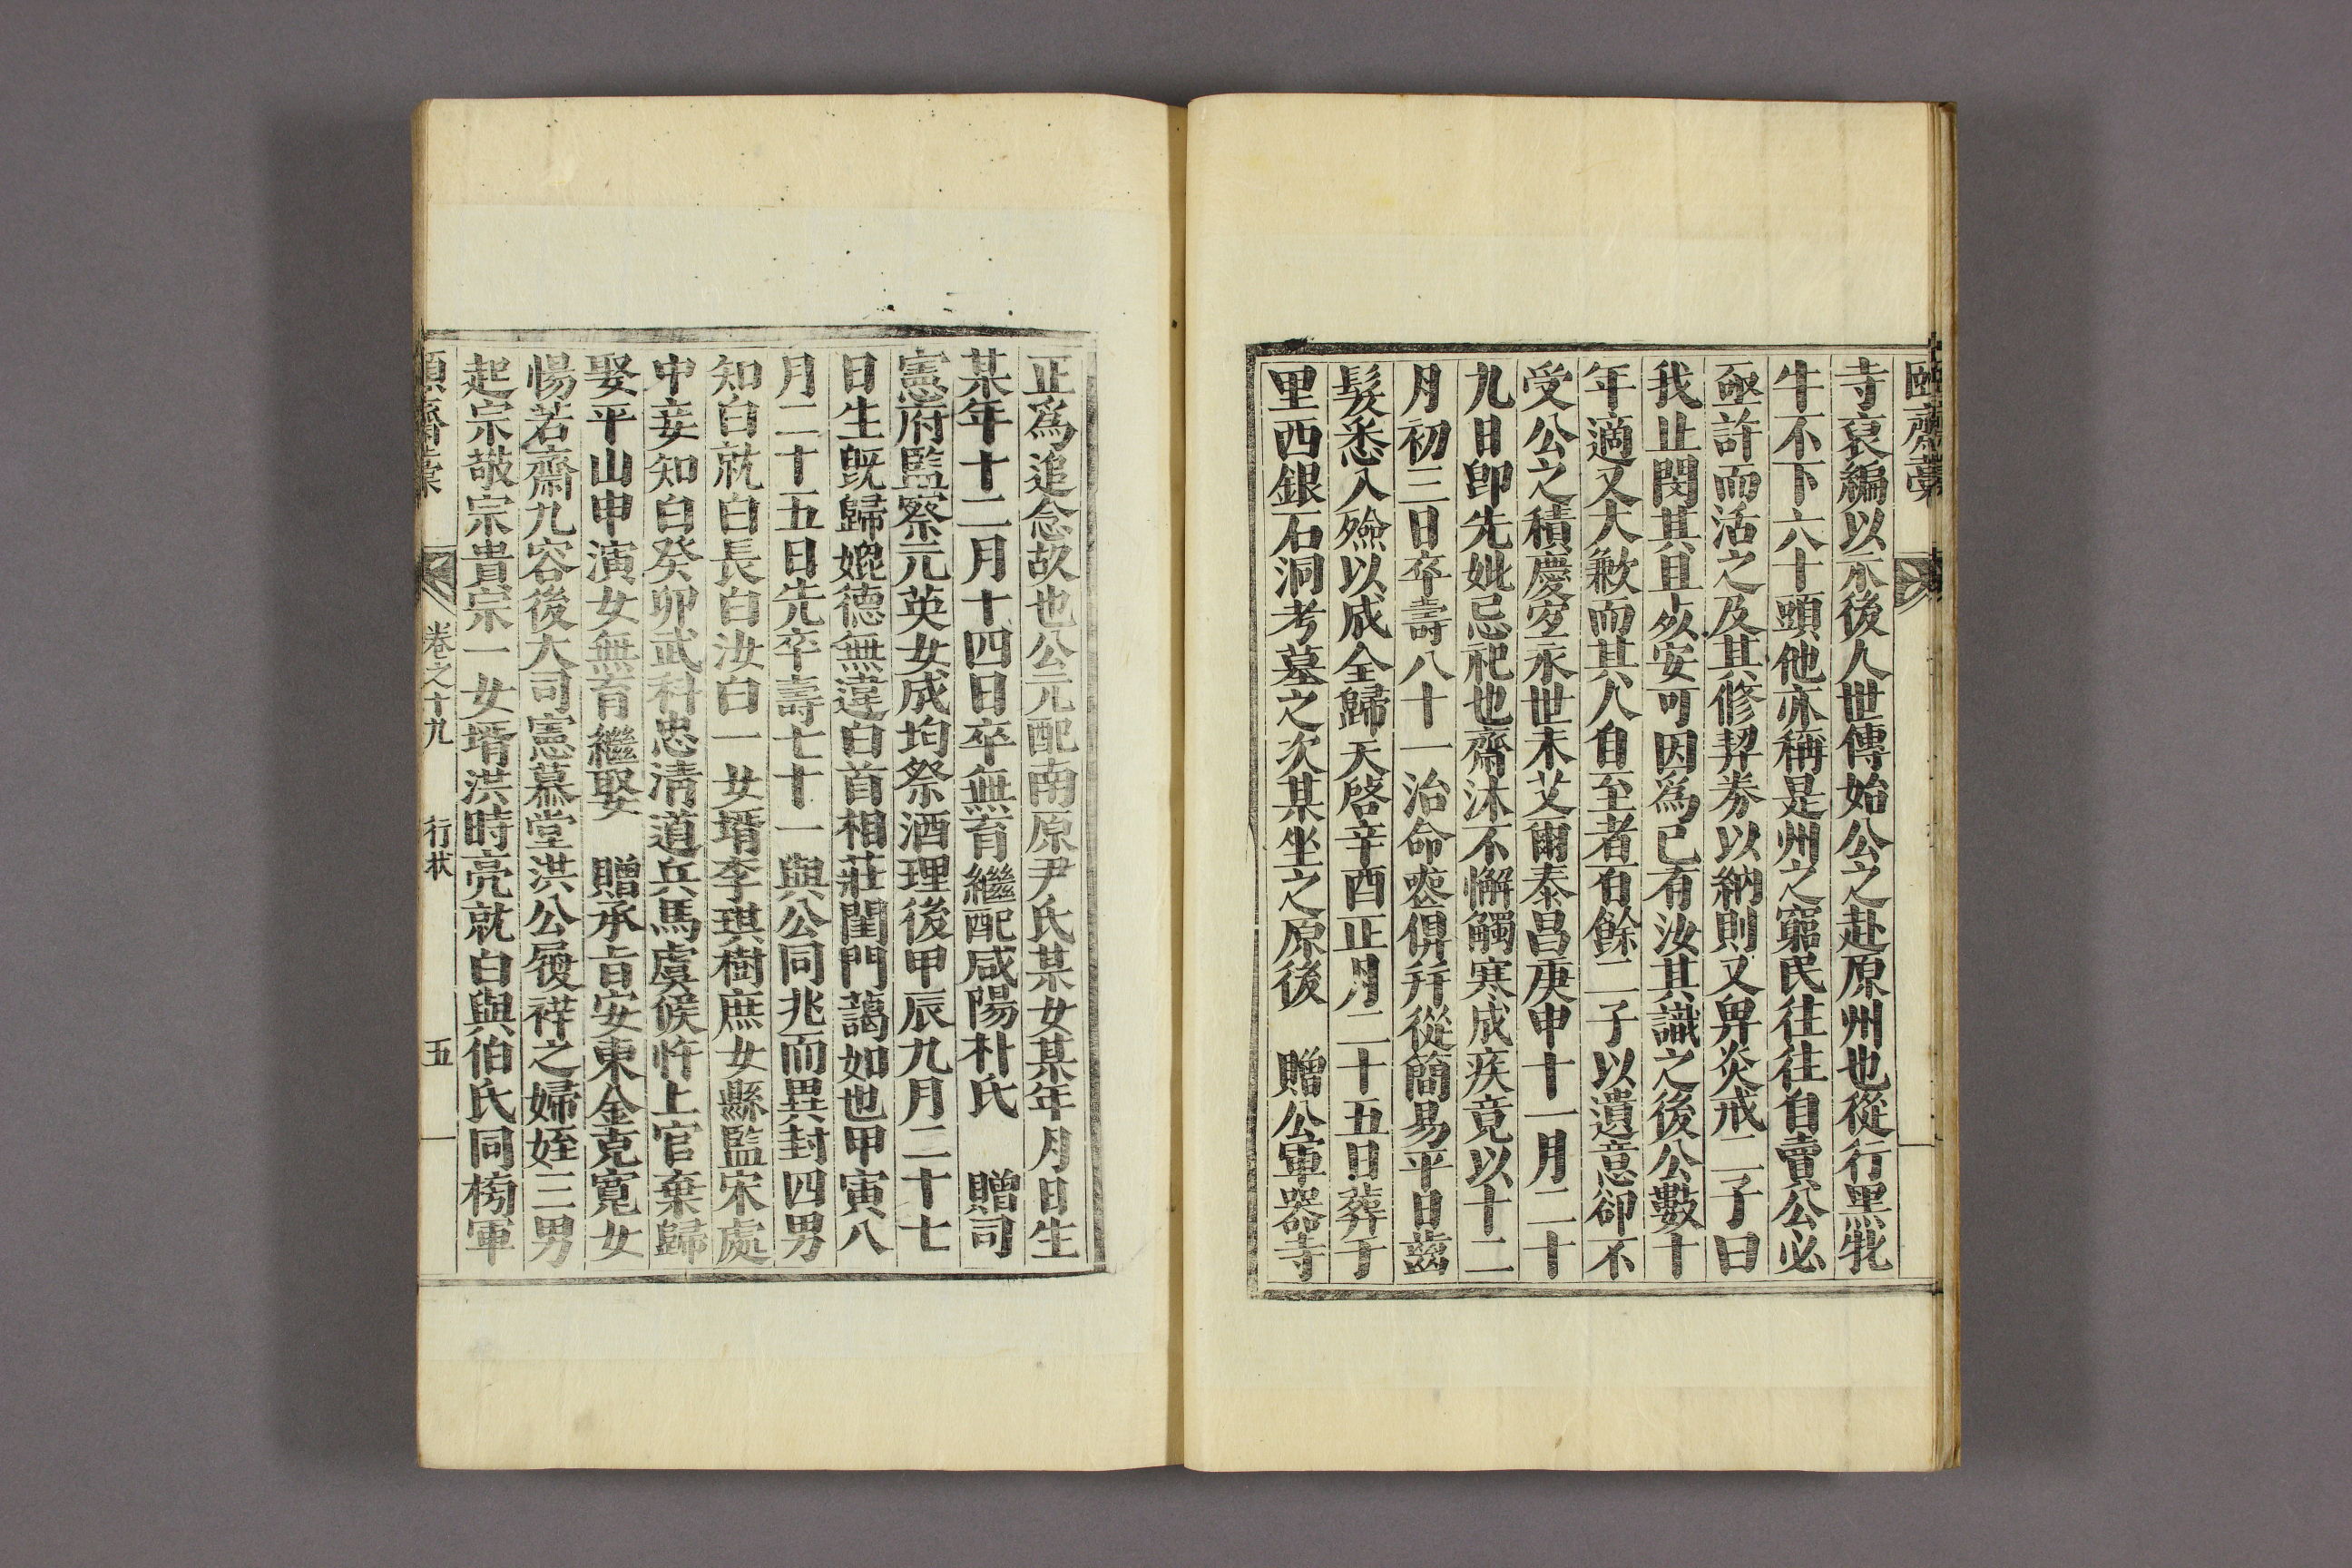 頤齋藁
寺裒編以示後人世傳始公之赴原州也從行黑牝
牛不下六十頭他亦稱是州之窮民往往自賣公必
亟許而活之及其修契券以納則又畀炎戒二子曰
我止閔其且死安可因爲已有汝其識之後公數十
年適又大歉而其人自至者百餘二子以遺意卻不
受公之積慶宜永世未艾爾泰昌庚申十一月二十
九日卽先妣忌祀也齋沐不懈觸寒成疾竟以十二
月初三日卒壽八十一治命喪俱幷從簡易平日齒
髮悉入殮以成全歸天啓辛酉正月二十五日葬于
里西銀石洞考墓之次某坐之原後 贈公軍器寺
正爲追念故也公元配南原尹氏某女某年月日生
某年十二月十四日卒無育繼配咸陽朴氏 贈司
憲府監察元英女成均祭酒理後甲辰九月二十七
日生旣歸媲德無違白首相莊閨門藹如也甲寅八
月二十五日先卒壽七十一與公同兆而異封四男
知白就白長白汝白一女壻李琪樹庶女縣監宋處
中妾知白癸卯武科忠淸道兵馬虞候忤上官棄歸
娶平山申演女無育繼娶 贈承旨安東金克寬女
惕若齋九容後大司憲慕堂洪公履祥之婦姪三男
起宗敬宗貴宗一女壻洪時亮就白與伯氏同榜軍
頤齋藁 卷之十九 行狀 五